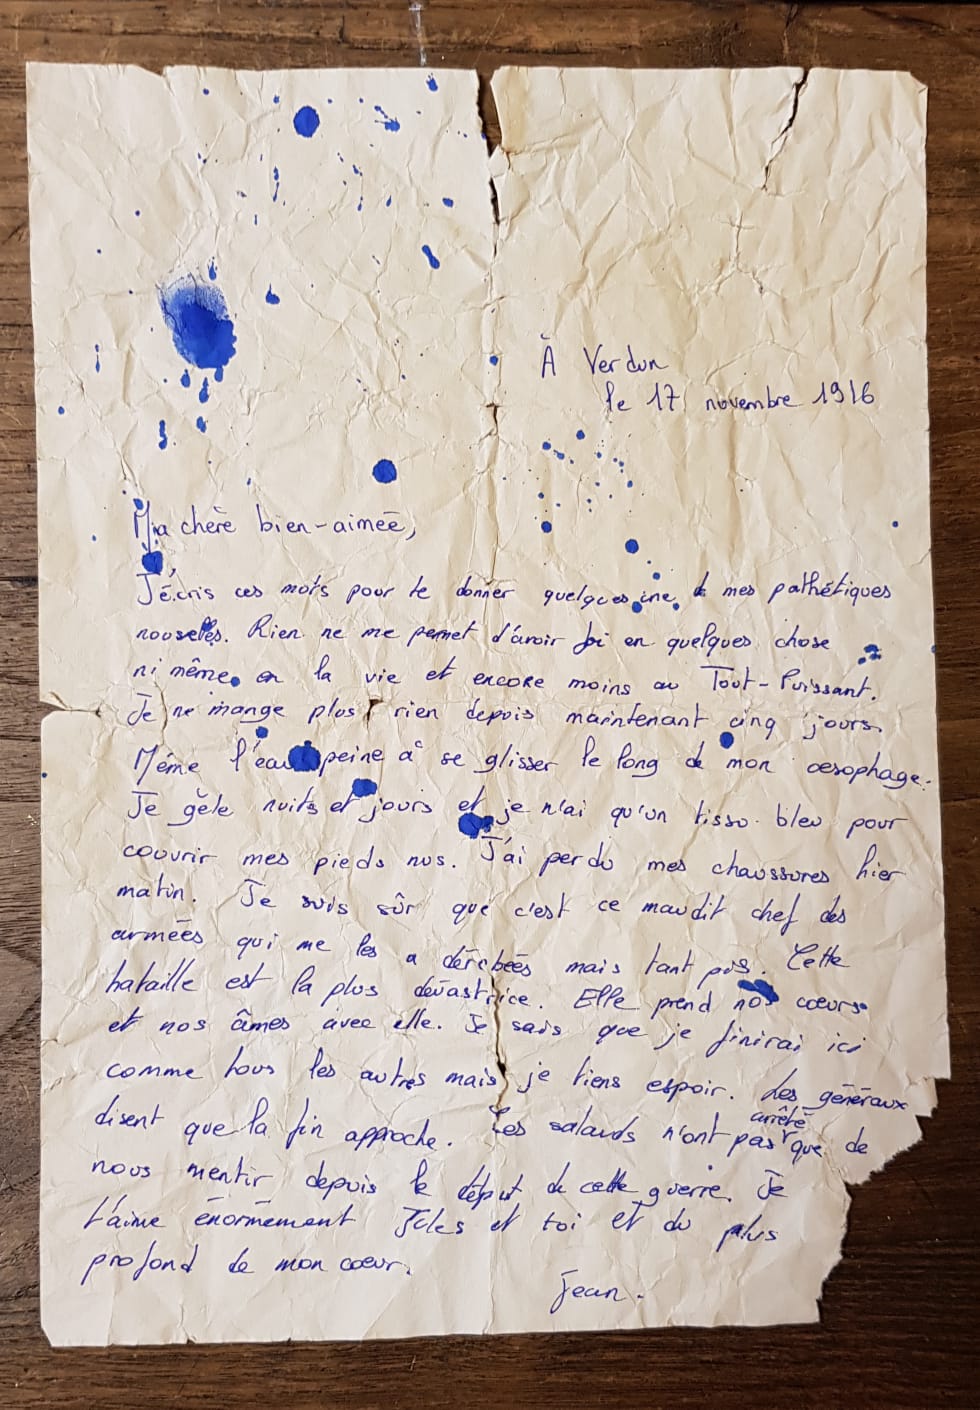 À Verdun
le 17 novembre 1916
Ma chère bien-aimée,
J'écris ces mots pour te donner quelques une de mes pathétiques
nouvelles. Rien ne me permet d'avoir foi en quelques chose
ni même en la vie et encore moins au Tout-Puissant.
Je ne mange plus rien depuis maintenant cinq jours.
Même l'eau peine à se glisser le long de mon œsophage.
Je gèle nuits et jours et je n'ai qu'un tissu bleu pour
couvrir mes pieds nus. J'ai perdu mes chaussures hier
matin. Je suis sûr que c'est ce maudit chef des
armées qui me les a dérobées mais tant pis. Cette
bataille est la plus dévastrice. Elle prend nos cœurs
et nos âmes avec elle. Je sais que je finirai ici
comme tous les autres mais je tiens espoir. Les généraux
disent que la fin approche. Les salauds n'ont pas arrêté que de
nous mentir depuis le début de cette guerre. Je
t'aime énormément Jules et toi et du plus
profond de mon cœur.
Jean.